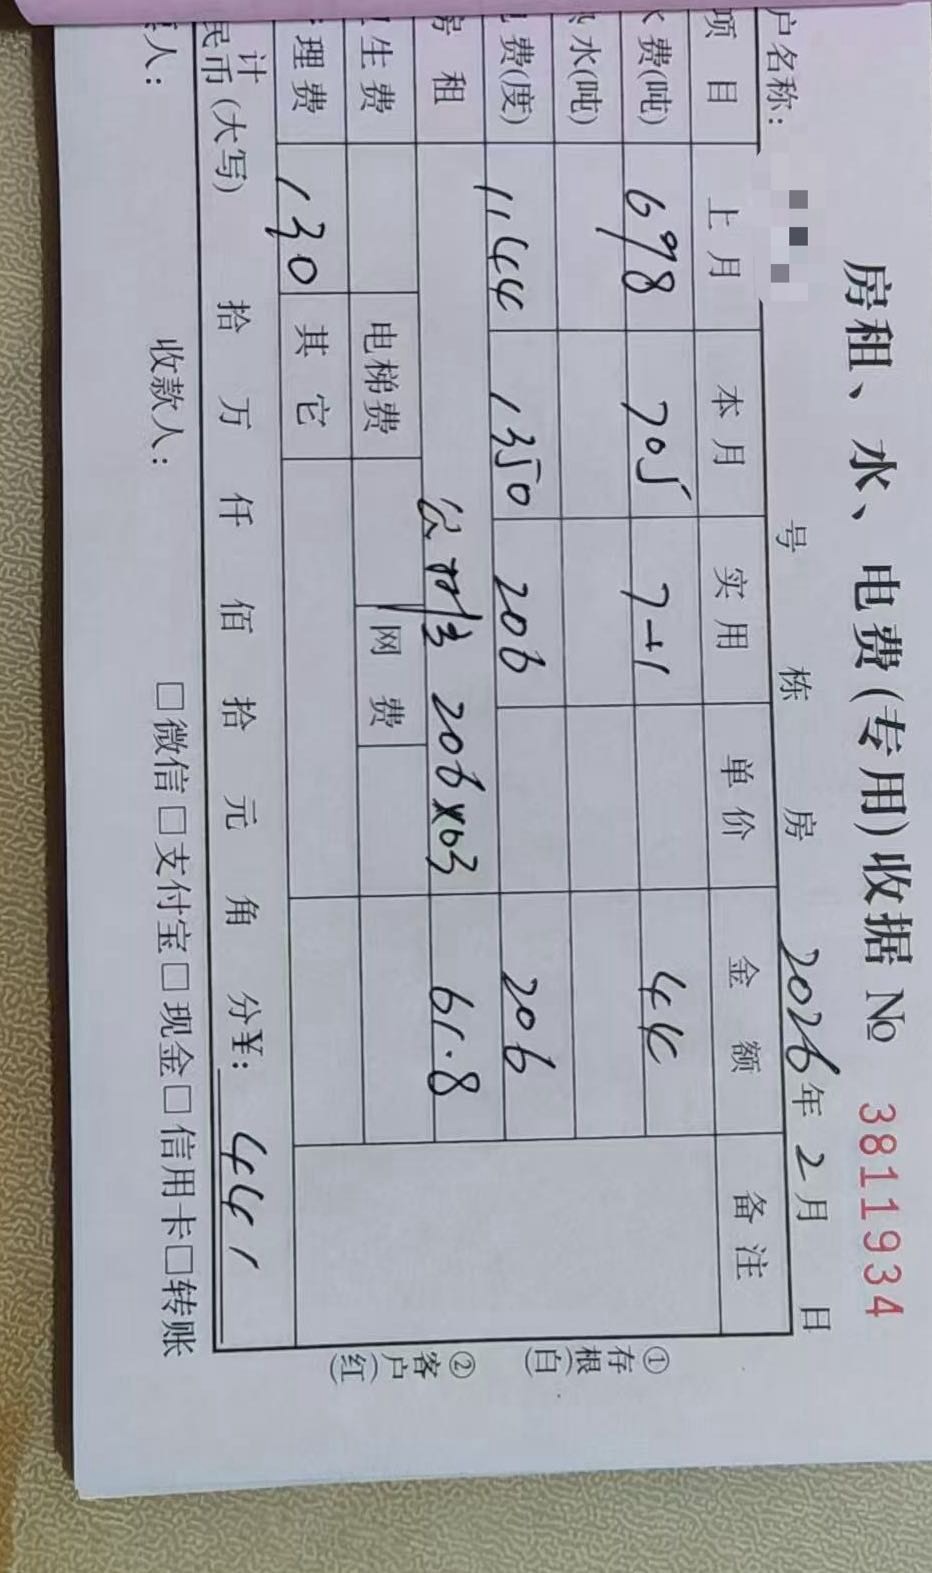 房租、水、电费(专用)收据 № 3811934
户名称: 号 栋 房 2026年2月 日
项 目 上 月 本 月 实 用 单 价 金 额 备 注
费(吨) 698 705 7+1 44
水(吨)
费(度) 1144 1350 206 206
房 租 公对生 206×03 61.8
生 费 电梯费 网 费
理 费 130 其 它
计
民币(大写) 拾 万 仟 佰 拾 元 角 分¥: 441
人: 收款人: □微信□支付宝□现金□信用卡□转账
①存根(白)
②客户(红)